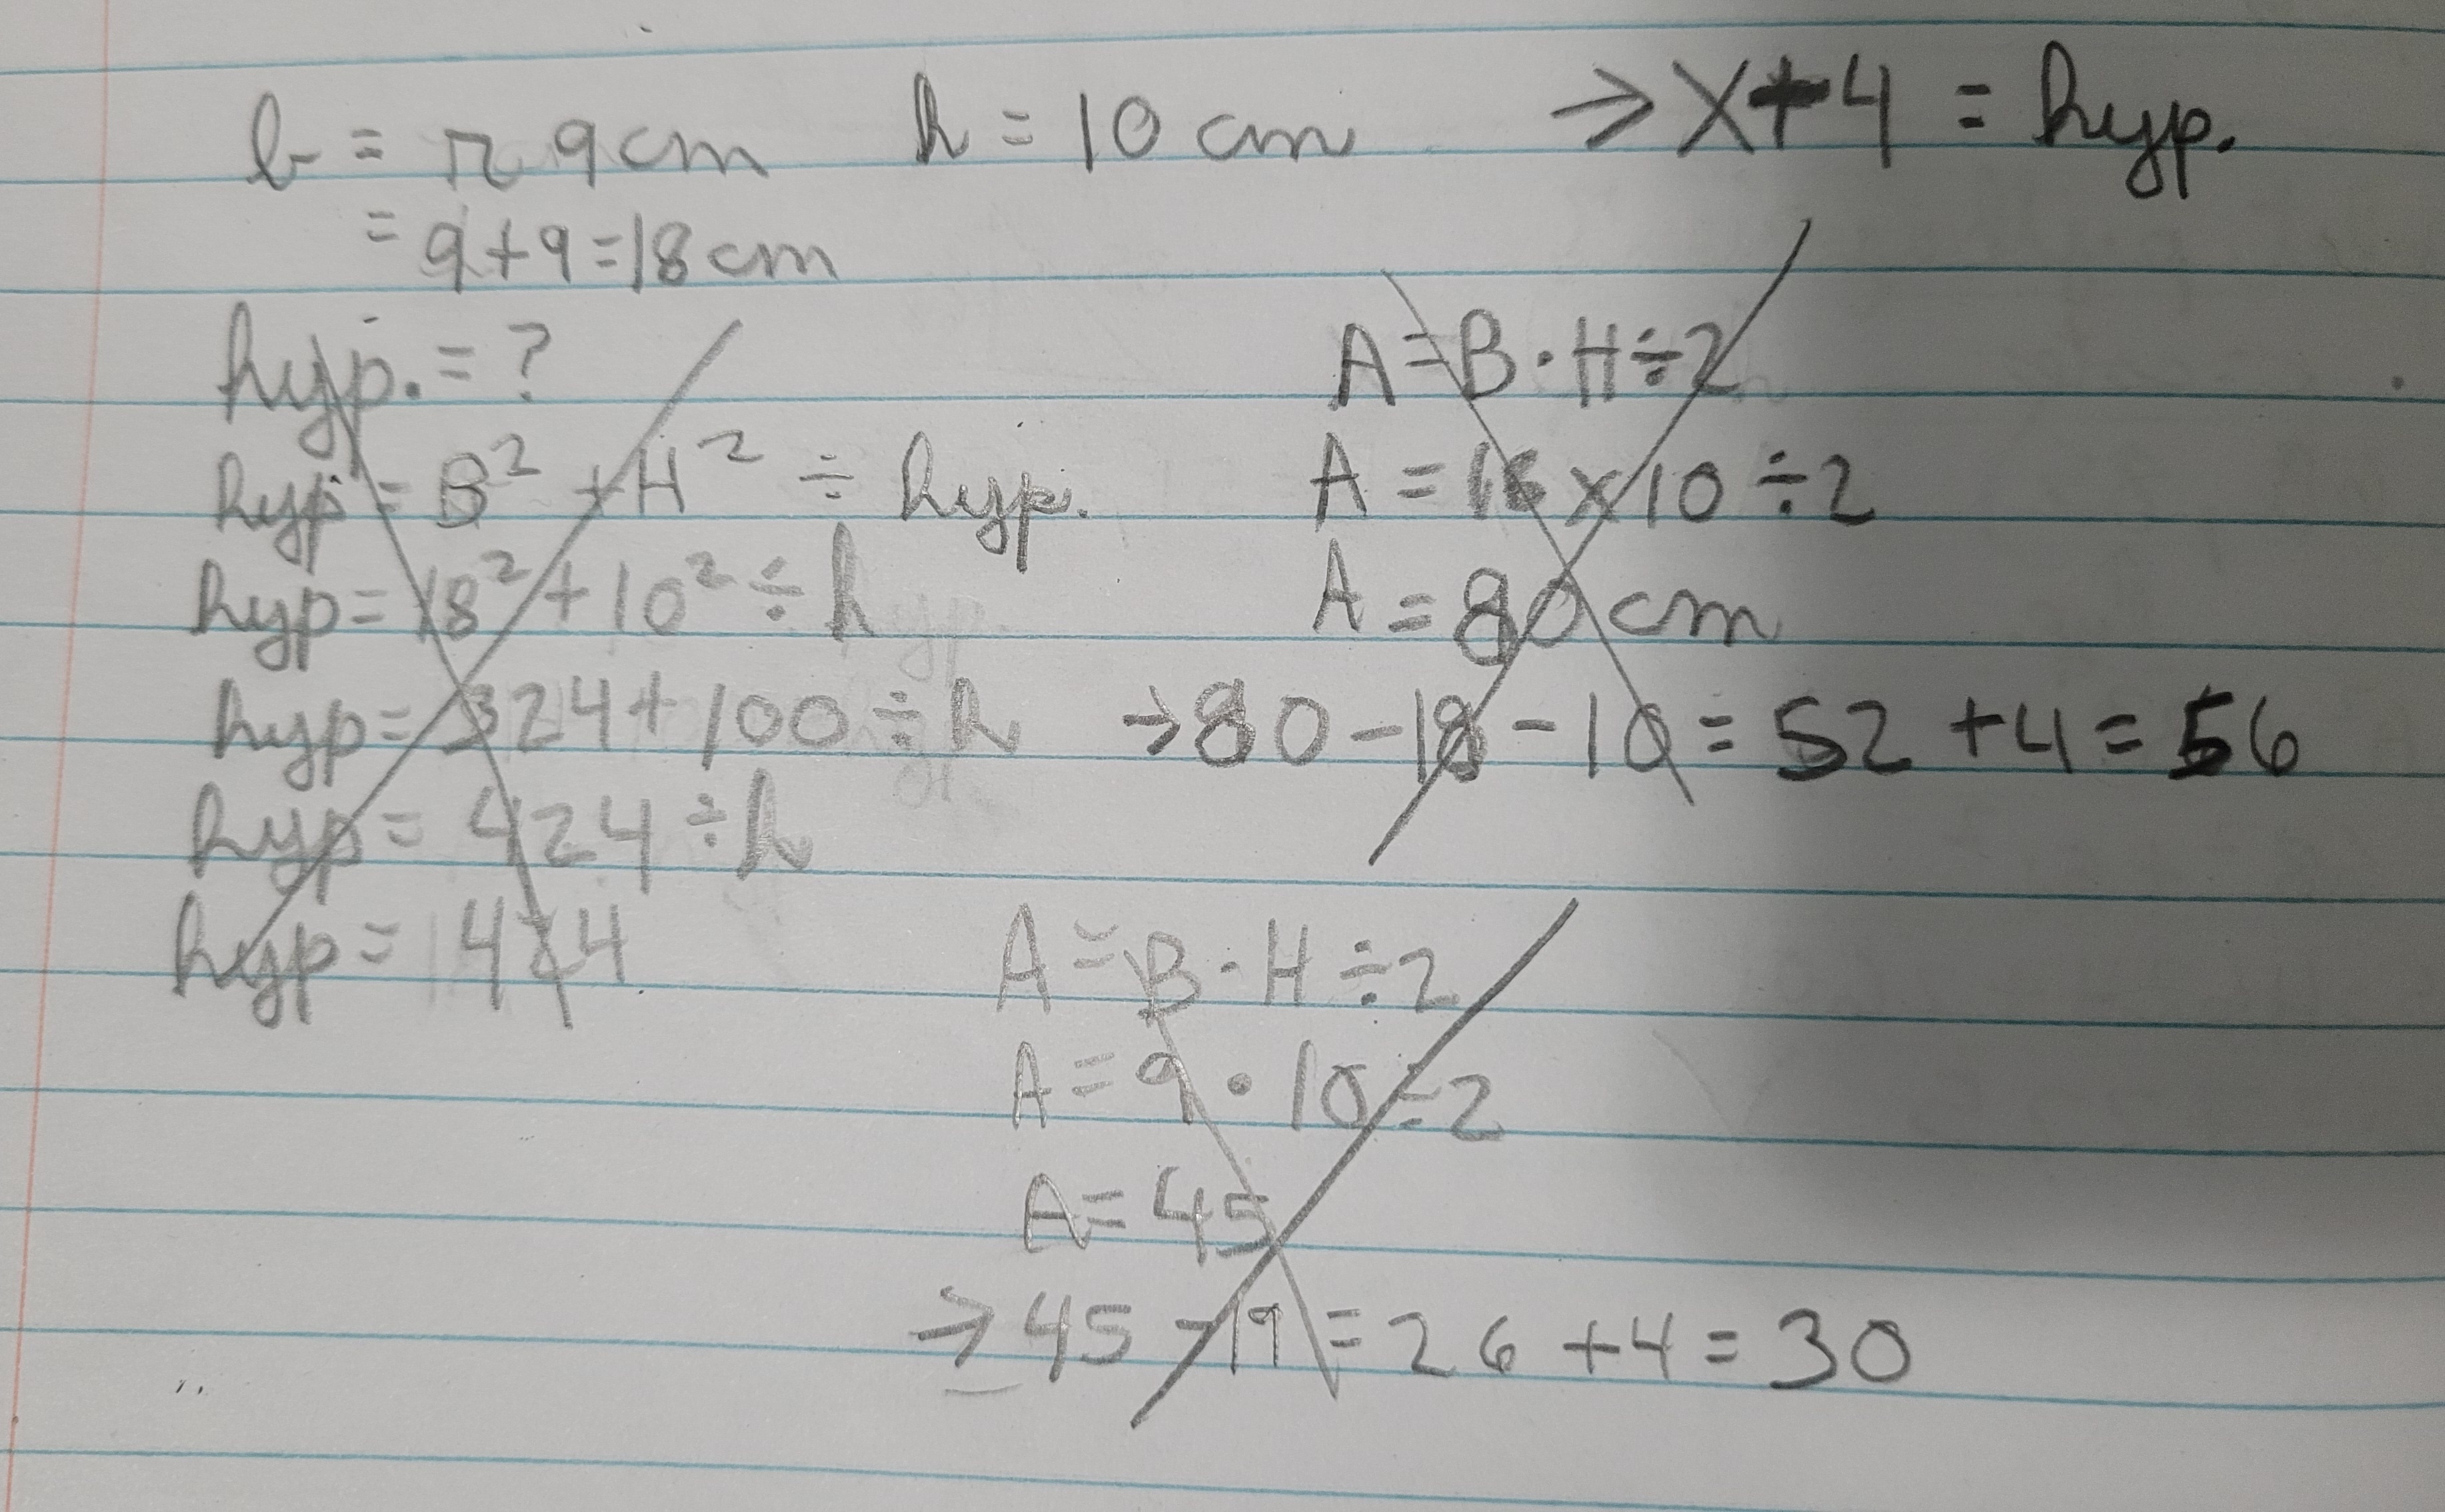 b = r 9cm h = 10 cm → x+4 = hyp.
= 9+9=18cm
hyp. = ?
hyp = B² + H² ÷ hyp.
hyp = 18² + 10² ÷ h
hyp = 324 + 100 ÷ h
hyp = 424 ÷ h
hyp = 424
A = B · H ÷ 2
A = 16 x 10 ÷ 2
A = 80 cm
→ 80 - 18 - 10 = 52 + 4 = 56
A = B · H ÷ 2
A = 9 · 10 ÷ 2
A = 45
→ 45 - 19 = 26 + 4 = 30